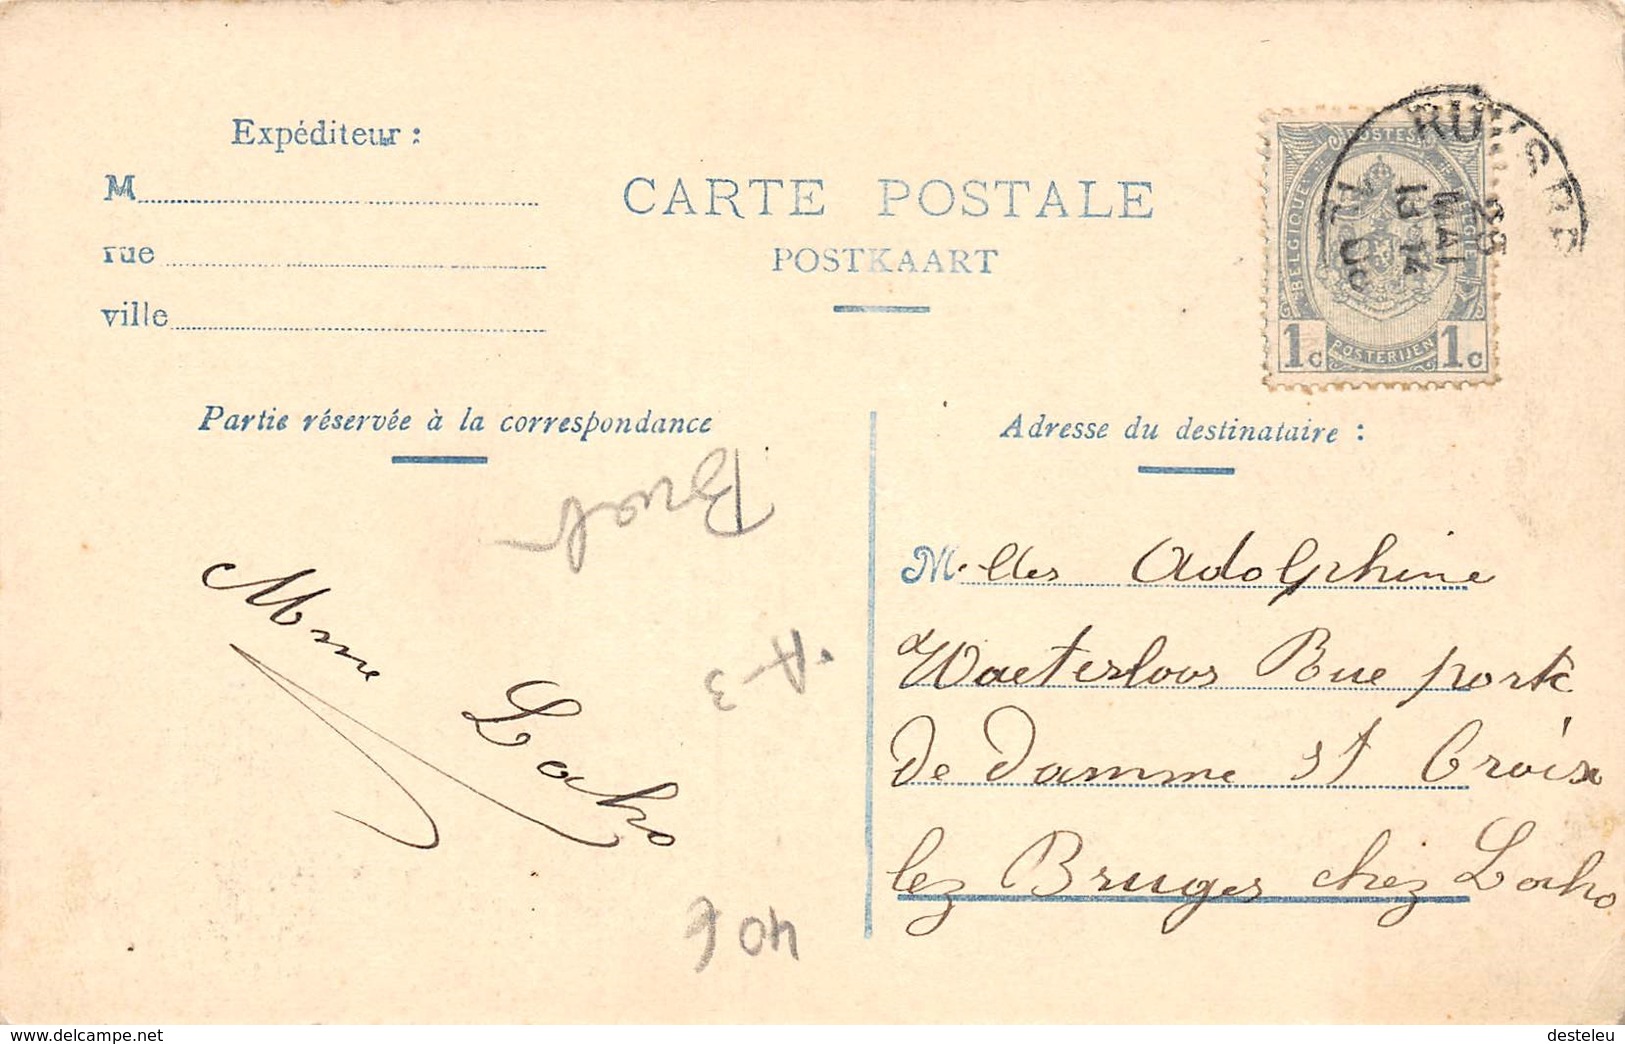 Expéditeur :
M
rue
ville
CARTE POSTALE
POSTKAART
POSTES
BELGIQUE BELGIË
1c POSTERIJEN 1c
25
MAI
13-14
Partie réservée à la correspondance
Adresse du destinataire :
Mme Locho
A-3
40 6
M.elles Adolphine
Waeterloos Rue porte
de Damme St Croix
lez Bruges chez Locho
www.delcampe.net
desteleu